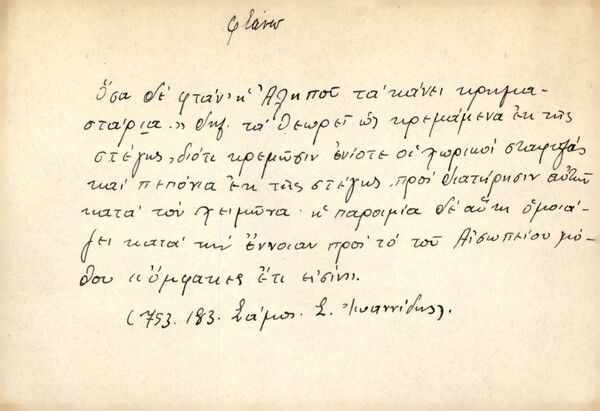 φτάνω
Ὅσα δέ φτάν' ἡ Ἀληποῦ τά κάνει κρημα-
σταρια.» δηλ. τά θεωρεῖ ὡς κρεμάμενα ἐκ τῆς
στέγης, διότι κρεμῶσιν ἐνίοτε οἱ χωρικοί σταφυλάς
καί πεπόνια ἐκ τῆς στέγης πρός διατήρησιν αὐτῶν
κατά τόν χειμῶνα. ἡ παροιμία δέ αὕτη ὁμοιά-
ζει κατά τήν ἔννοιαν πρός τό τοῦ Αἰσωπείου μύ-
θου «ὄμφακες ἔτι εἰσίν».
(753. 183. Σάμος. Σ. Ἰωαννίδης).